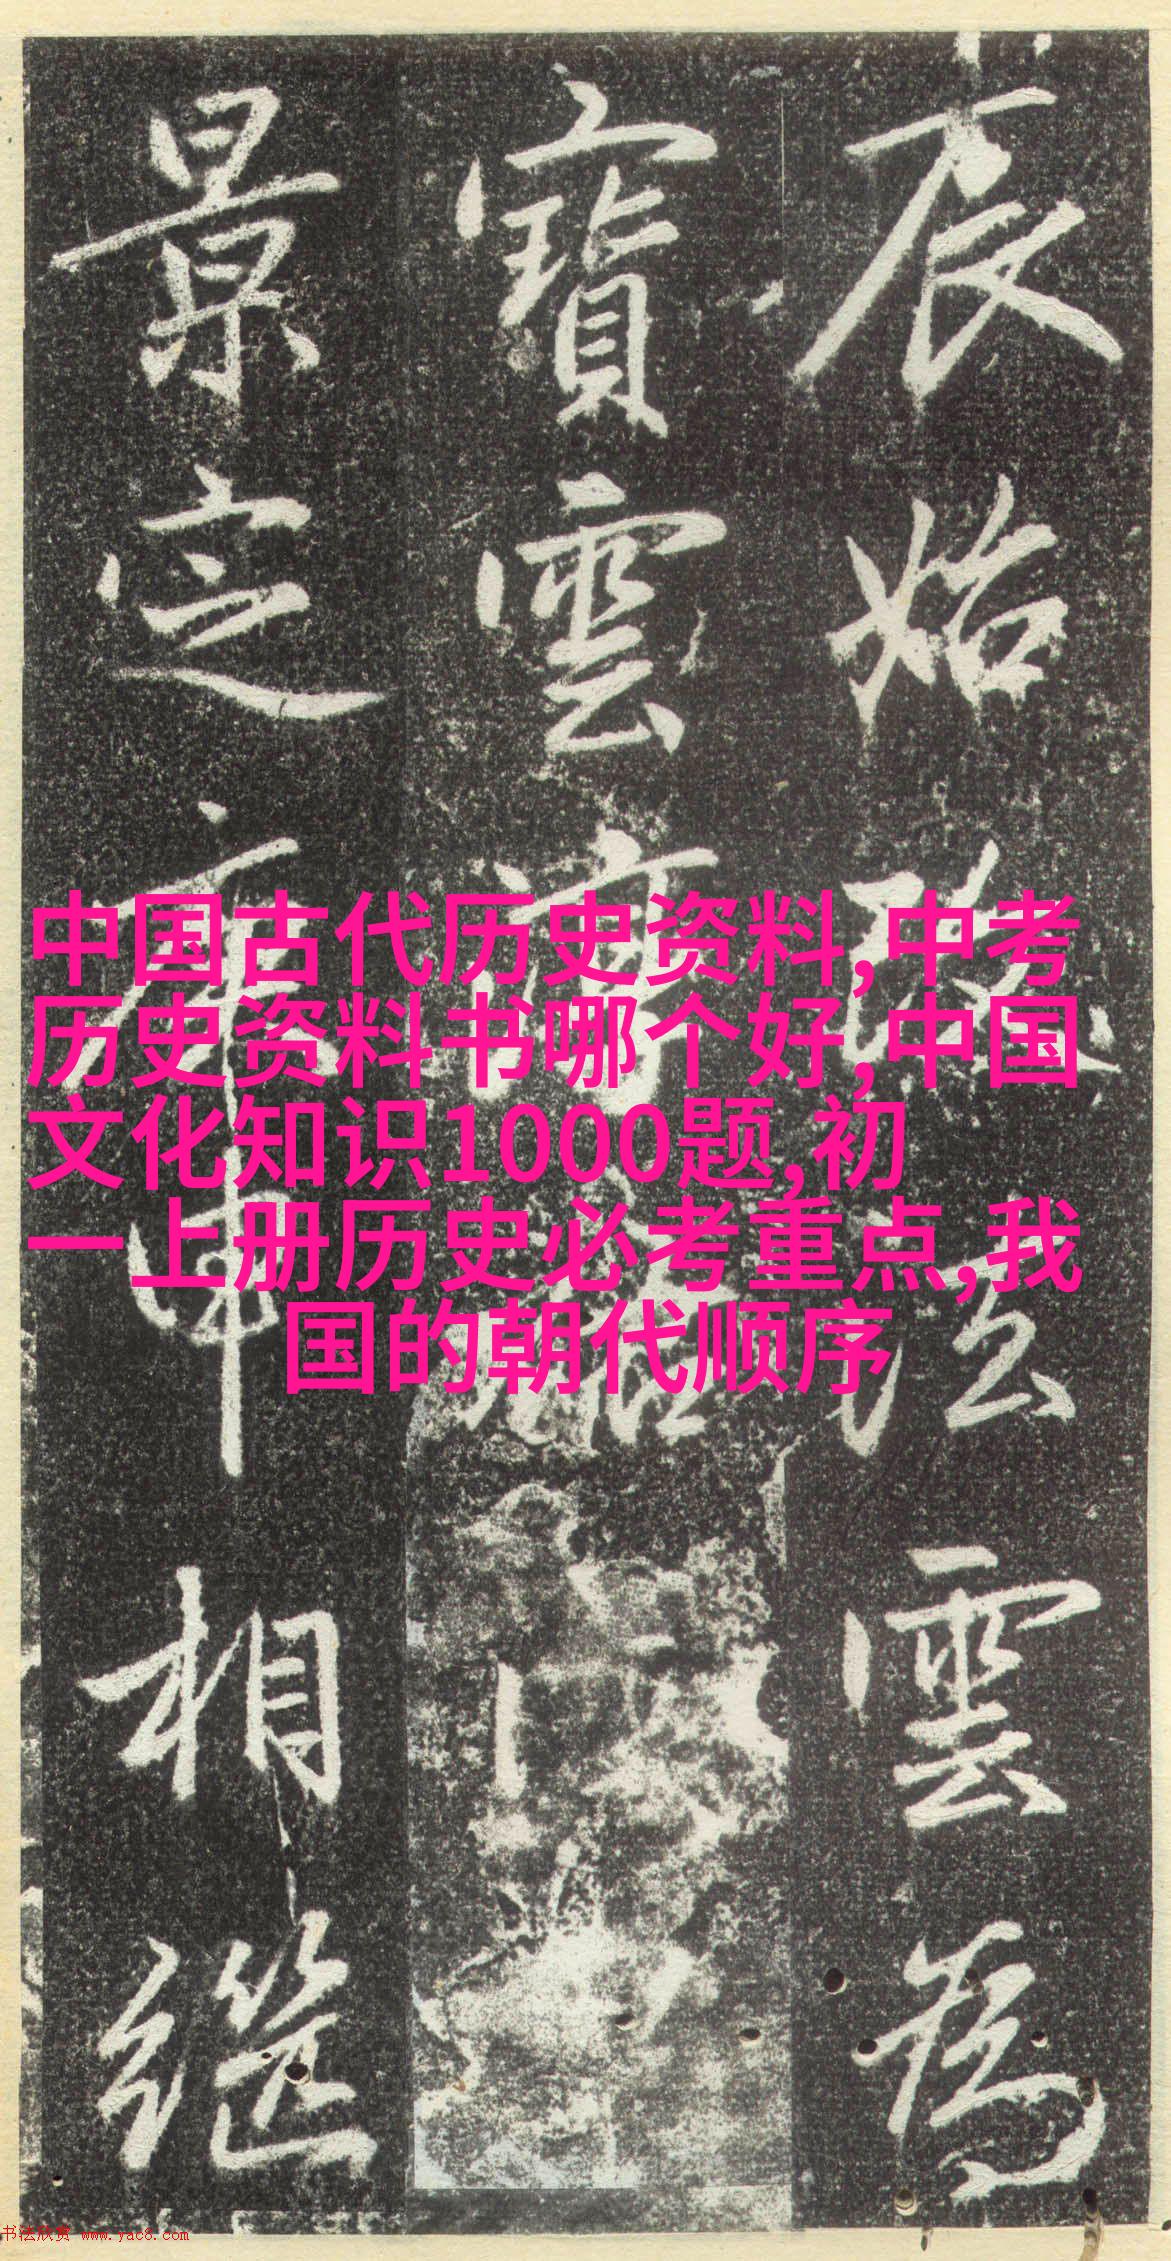 辰始法雲為
寶雲
景定庚申相繼
中国古代历史资料,中考
历史资料书哪个好,中国
文化知识1000题,初
一上册历史必考重点,我
国的朝代顺序
书法欣赏 www.yac8.com